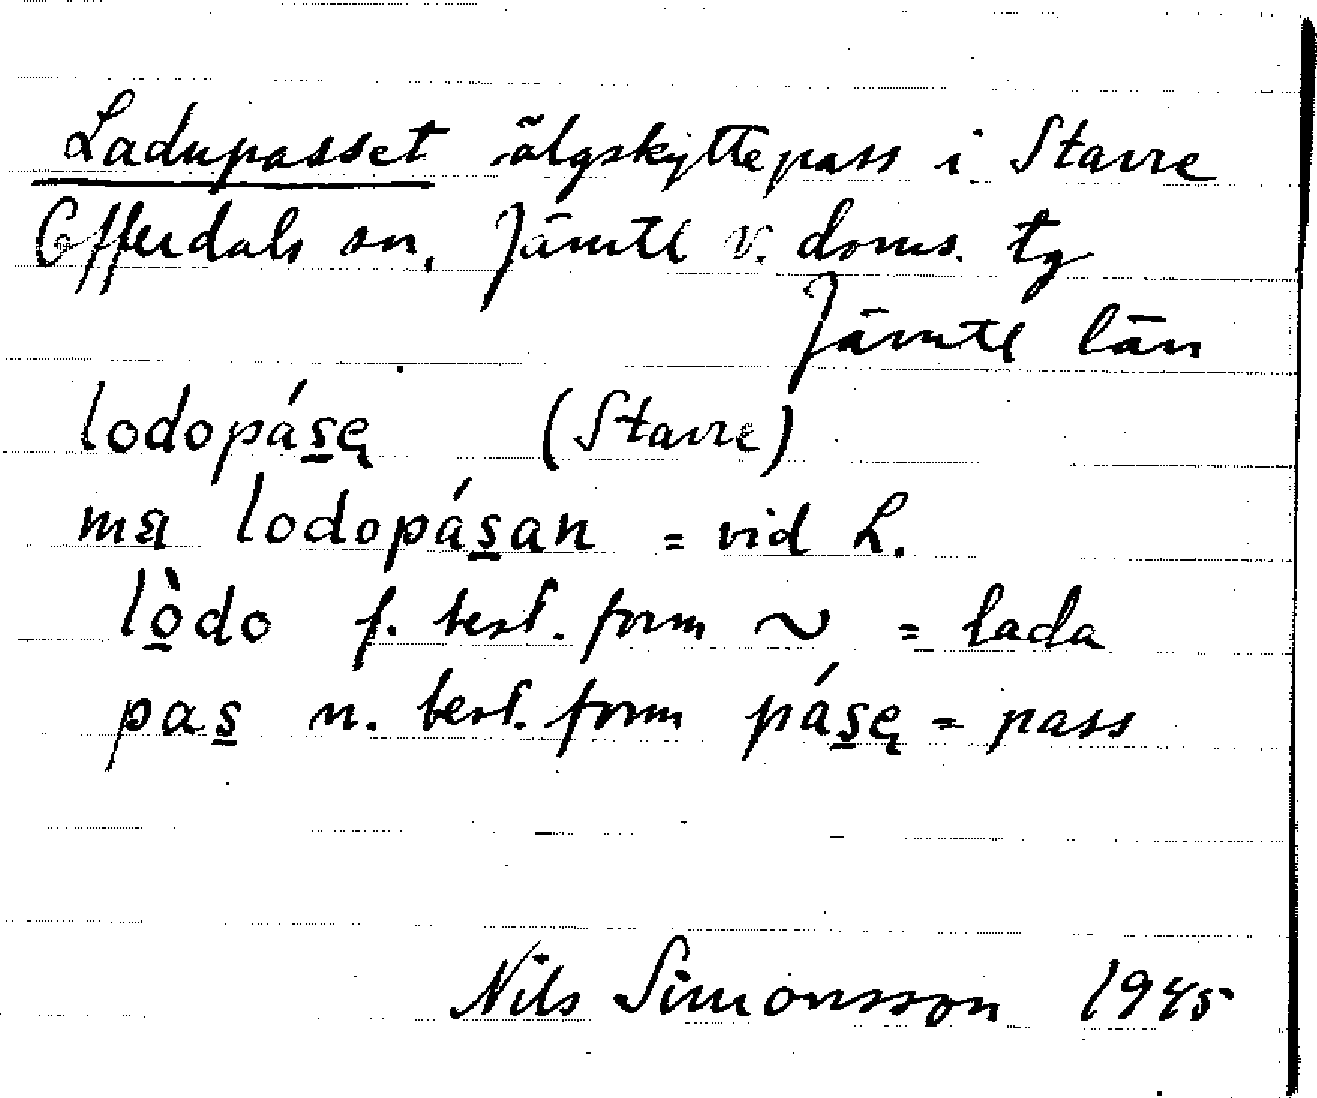 Ladupasset älgskyttepass i Stavre
Offerdals sn, Jämtl v. doms. tg
Jämtl län
lodopás̲ę (Stavre)
lodopás̲an = vid L.
lò̲do f. best. form ~ = lada
pas̲ n. best. form pás̲ę = pass
Nils Simonsson 1945